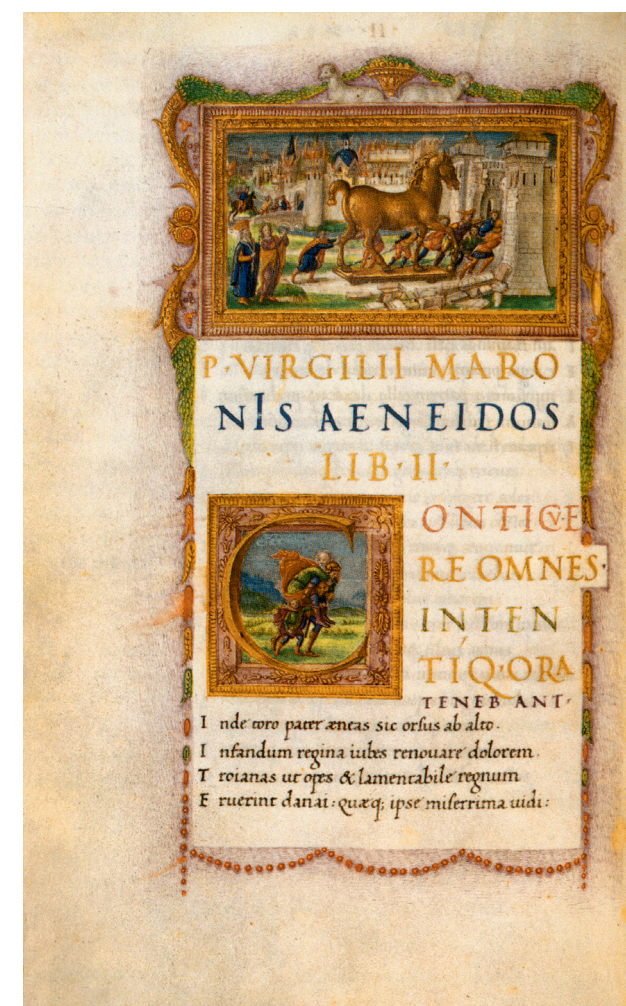 P·VIRGILII MARO
NIS AENEIDOS
LIB·II·
CONTICVE
RE OMNES·
INTEN
TIQ·ORA
TENEBANT·
Inde toro pater æneas sic orsus ab alto.
Infandum regina iubes renouare dolorem.
Troianas ut opes & lamentabile regnum
Eruerint danai: quæq; ipse miserrima uidi: